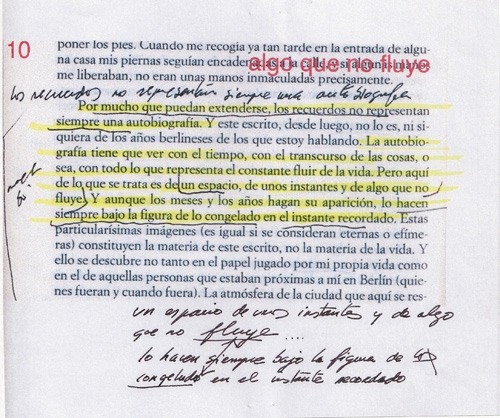 10
algo que no fluye
poner los pies. Cuando me recogía ya tan tarde en la entrada de algu-
na casa mis piernas seguían encadenadas a la calle, y si algunas manos
me liberaban, no eran unas manos inmaculadas precisamente.
los recuerdos no representan siempre una autobiografía
Por mucho que puedan extenderse, los recuerdos no representan
siempre una autobiografía. Y este escrito, desde luego, no lo es, ni si-
quiera de los años berlineses de los que estoy hablando. La autobio-
grafía tiene que ver con el tiempo, con el transcurso de las cosas, o
sea, con todo lo que representa el constante fluir de la vida. Pero aquí
de lo que se trata es de un espacio, de unos instantes y de algo que no
fluye. Y aunque los meses y los años hagan su aparición, lo hacen
siempre bajo la figura de lo congelado en el instante recordado. Estas
particularísimas imágenes (es igual si se consideran eternas o efíme-
ras) constituyen la materia de este escrito, no la materia de la vida. Y
ello se descubre no tanto en el papel jugado por mi propia vida como
en el de aquellas personas que estaban próximas a mí en Berlín (quie-
nes fueran y cuando fuera). La atmósfera de la ciudad que aquí se res-
un espacio de unos instantes y de algo
que no fluye ....
lo hacen siempre bajo la figura de lo
congelado en el instante recordado